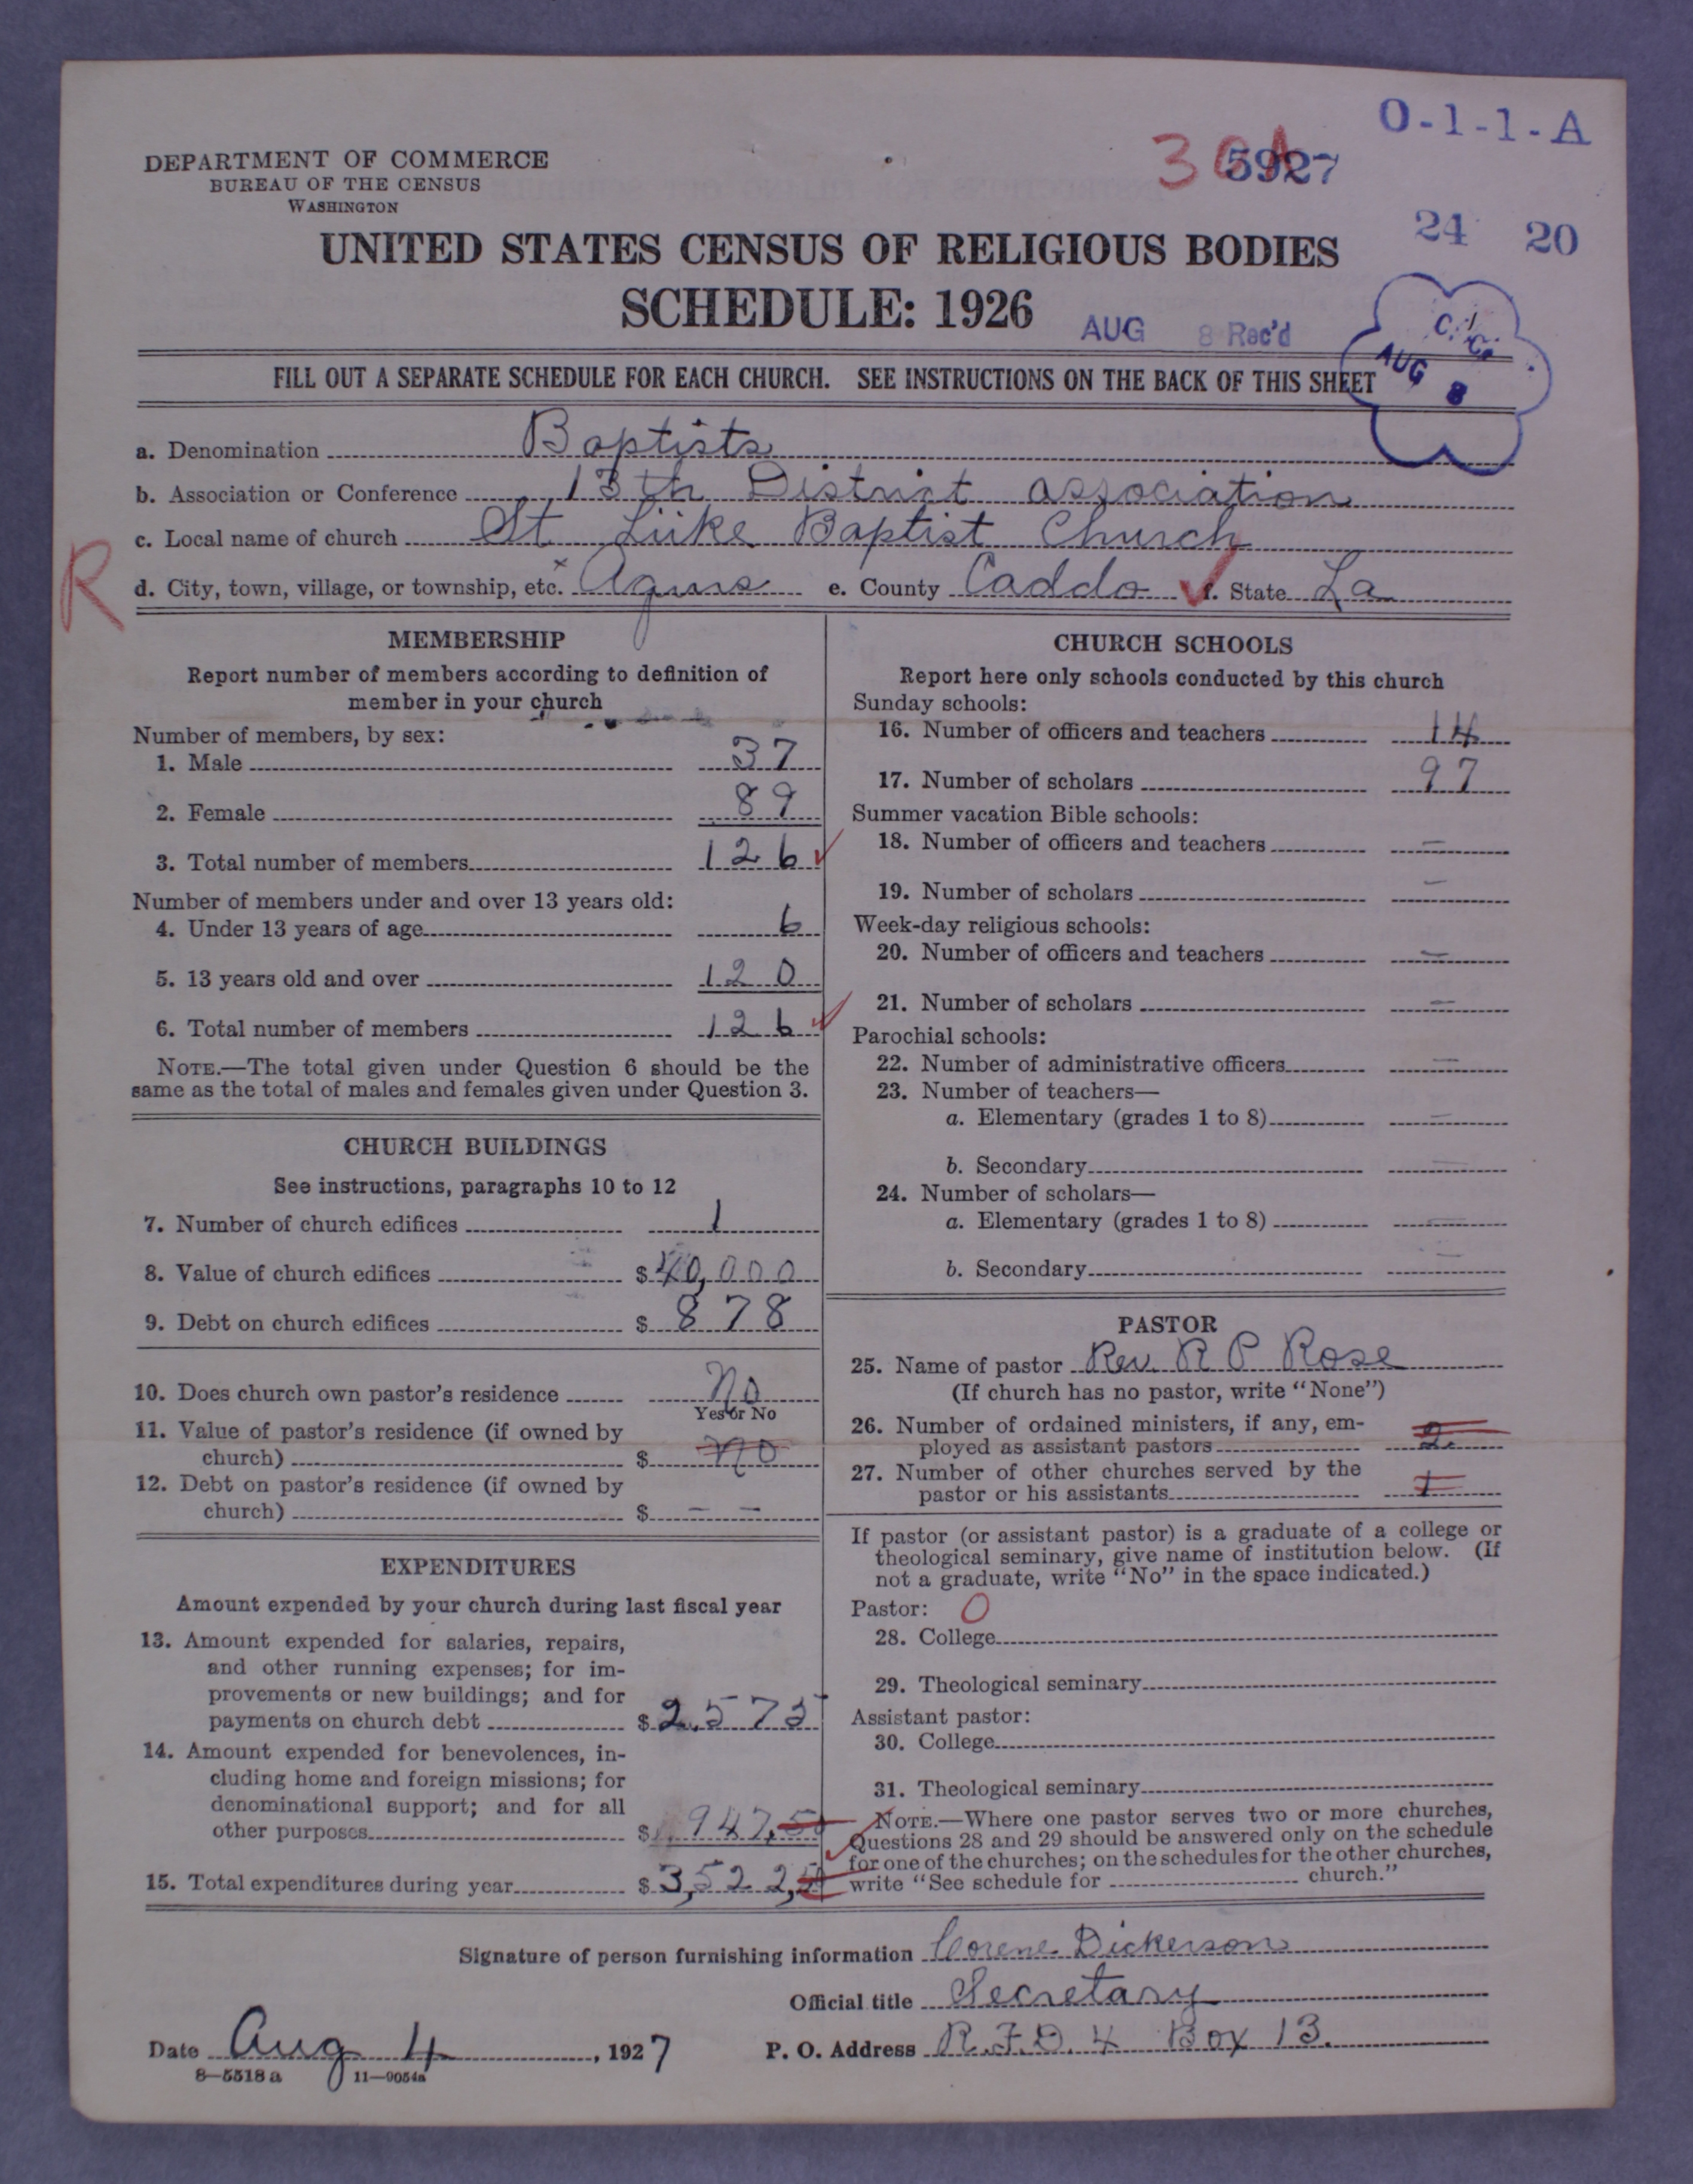 O-1-1-A
30A 5927
DEPARTMENT OF COMMERCE
BUREAU OF THE CENSUS
WASHINGTON
24 20
UNITED STATES CENSUS OF RELIGIOUS BODIES
SCHEDULE: 1926
AUG 8 Rec'd
AUG 8
FILL OUT A SEPARATE SCHEDULE FOR EACH CHURCH. SEE INSTRUCTIONS ON THE BACK OF THIS SHEET
a. Denomination Baptists
b. Association or Conference 13th District association
c. Local name of church St Luke Baptist Church
R
d. City, town, village, or township, etc. e. County Caddo f. State La
MEMBERSHIP
Report number of members according to definition of
member in your church
Number of members, by sex:
1. Male 37
2. Female 89
3. Total number of members 126
Number of members under and over 13 years old:
4. Under 13 years of age 6
5. 13 years old and over 120
6. Total number of members 126
NOTE.—The total given under Question 6 should be the
same as the total of males and females given under Question 3.
CHURCH BUILDINGS
See instructions, paragraphs 10 to 12
7. Number of church edifices 1
8. Value of church edifices $40,000
9. Debt on church edifices $ 878
10. Does church own pastor's residence No
Yes or No
11. Value of pastor's residence (if owned by
church) $ No
12. Debt on pastor's residence (if owned by
church) $ – –
EXPENDITURES
Amount expended by your church during last fiscal year
13. Amount expended for salaries, repairs,
and other running expenses; for im-
provements or new buildings; and for
payments on church debt $2,575
14. Amount expended for benevolences, in-
cluding home and foreign missions; for
denominational support; and for all
other purposes $ 947.50
15. Total expenditures during year $3,522.50
CHURCH SCHOOLS
Report here only schools conducted by this church
Sunday schools:
16. Number of officers and teachers 14
17. Number of scholars 97
Summer vacation Bible schools:
18. Number of officers and teachers –
19. Number of scholars –
Week-day religious schools:
20. Number of officers and teachers –
21. Number of scholars –
Parochial schools:
22. Number of administrative officers –
23. Number of teachers—
a. Elementary (grades 1 to 8) –
b. Secondary –
24. Number of scholars—
a. Elementary (grades 1 to 8) –
b. Secondary –
PASTOR
25. Name of pastor Rev. R P Rose
(If church has no pastor, write "None")
26. Number of ordained ministers, if any, em-
ployed as assistant pastors 2
27. Number of other churches served by the
pastor or his assistants 1
If pastor (or assistant pastor) is a graduate of a college or
theological seminary, give name of institution below. (If
not a graduate, write "No" in the space indicated.)
Pastor: O
28. College
29. Theological seminary
Assistant pastor:
30. College
31. Theological seminary
NOTE.—Where one pastor serves two or more churches,
Questions 28 and 29 should be answered only on the schedule
for one of the churches; on the schedules for the other churches,
write "See schedule for church."
Signature of person furnishing information Corene Dickerson
Official title Secretary
Date Aug 4, 1927 P. O. Address R.F.D. 4 Box 13.
8—5518 a 11—9054a